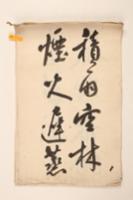 積雨空林
煙火遲蒸